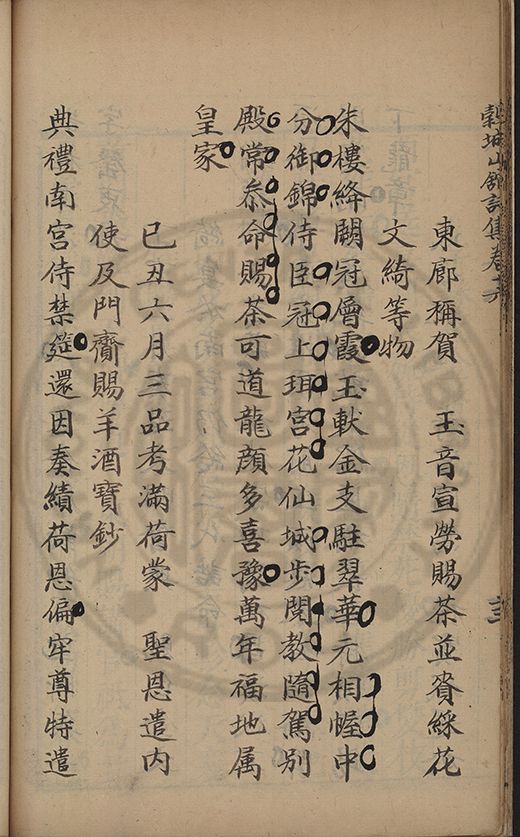 穀城山館詩集卷十六
東廊稱賀　玉音宣勞賜茶並賚綵花
文綺等物
朱樓絳闕冠層霞玉軑金支駐翠華元相幄中
分御錦侍臣冠上珥宮花仙城步閱教隨駕別
殿常叅命賜茶可道龍顔多喜豫萬年福地属
皇家
己丑六月三品考滿荷蒙　聖恩遣内
使及門齎賜羊酒寶鈔
典禮南宮侍禁筵還因奏績荷恩偏牢尊特遣